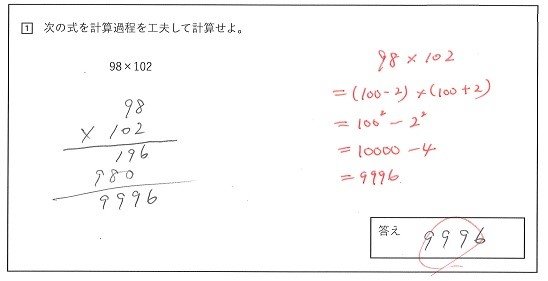 1 次の式を計算過程を工夫して計算せよ。
98×102
98
× 102
196
980
9996
98 × 102
= (100-2) × (100+2)
= 100² - 2²
= 10000 - 4
= 9996
答え 9996